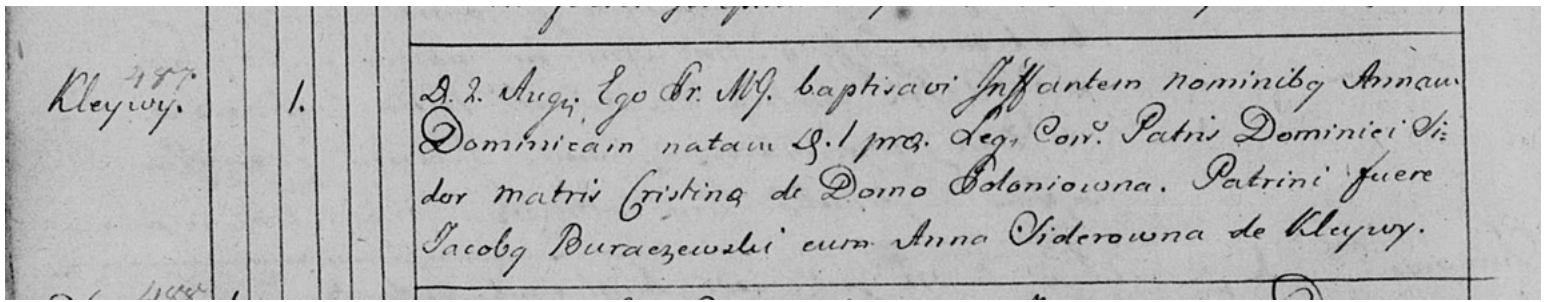 487.
Kleywy. 1. D. 2. Augi, Ego Fr. MG. baptisavi Inffantem nominibq Annam
Dominicam natam D. 1 prq. Leg. Con. Patris Dominici Si=
dor matris Cristinq de Domo Poloniowna. Patrini fuere
Jacobq Buraczewski cum Anna Siderowna de Kleywy.
488